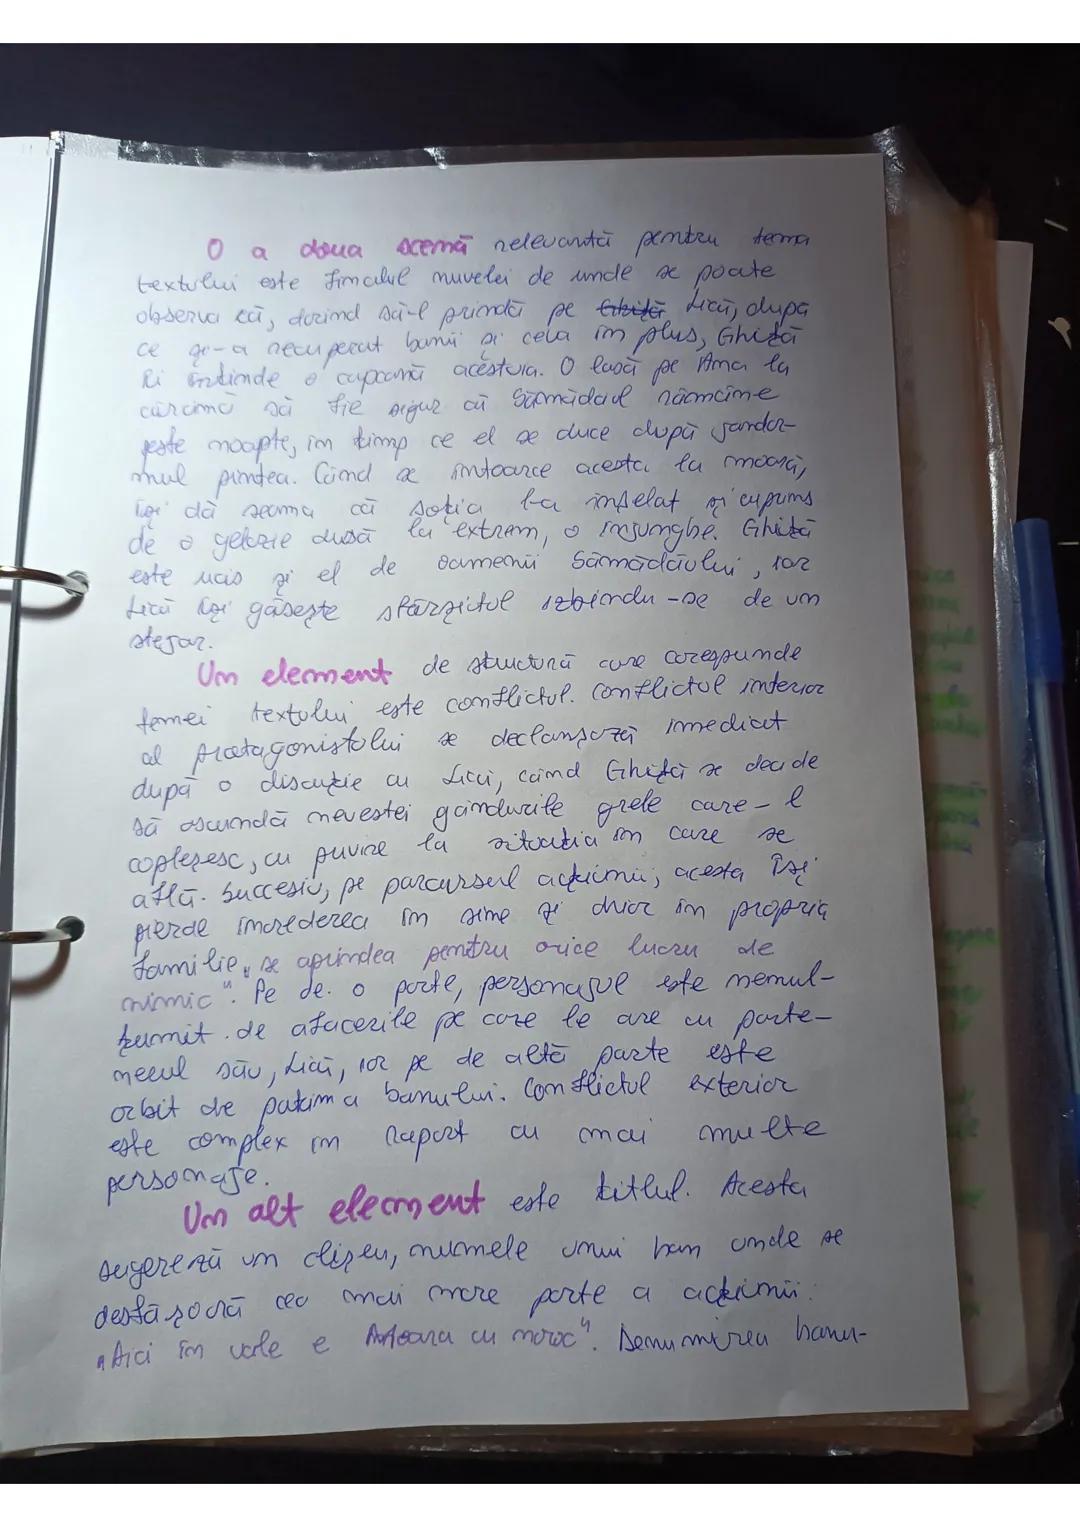 O a doua scenă relevantă pentru tema
textului este finalul nuvelei de unde se poate
observa că, dorind să-l prindă pe Ghiță Lică, după
ce și-a recuperat banii și cela în plus, Ghiță
îi întinde o capcană acestuia. O lasă pe Ana la
cârcimă să fie sigur că Sămădăul rămâne
peste noapte, în timp ce el se duce după jandar-
mul pintea. Când se întoarce acesta la moară,
își dă seama că soția l-a înșelat și cuprins
de o gelozie dusă la extrem, o înjunghe. Ghiță
este ucis și el de oamenii Sămădăului, iar
Lică își găsește sfârșitul izbindu-se de un
stejar.
Un element de structură care corespunde
temei textului este conflictul. Conflictul interior
al protagonistului se declanșază imediat
după o discuție cu Lică, când Ghiță se decide
să ascundă nevestei gândurile grele care-l
copleșesc, cu privire la situația în care se
află. Succesiv, pe parcursul acțiunii, acesta își
pierde încrederea în sine și chiar în propria
familie „se aprindea pentru orice lucru de
nimic". Pe de o parte, personajul este nemul-
țumit de afacerile pe care le are cu parte-
nerul său, Lică, iar pe de altă parte este
orbit de patima banului. Conflictul exterior
este complex în raport cu mai multe
personaje.
Un alt element este titlul. Acesta
sugerează un clișeu, numele unui han unde se
desfășoară cea mai mare parte a acțiunii.
„Aici în vale e Moara cu noroc". Denumirea hanu-